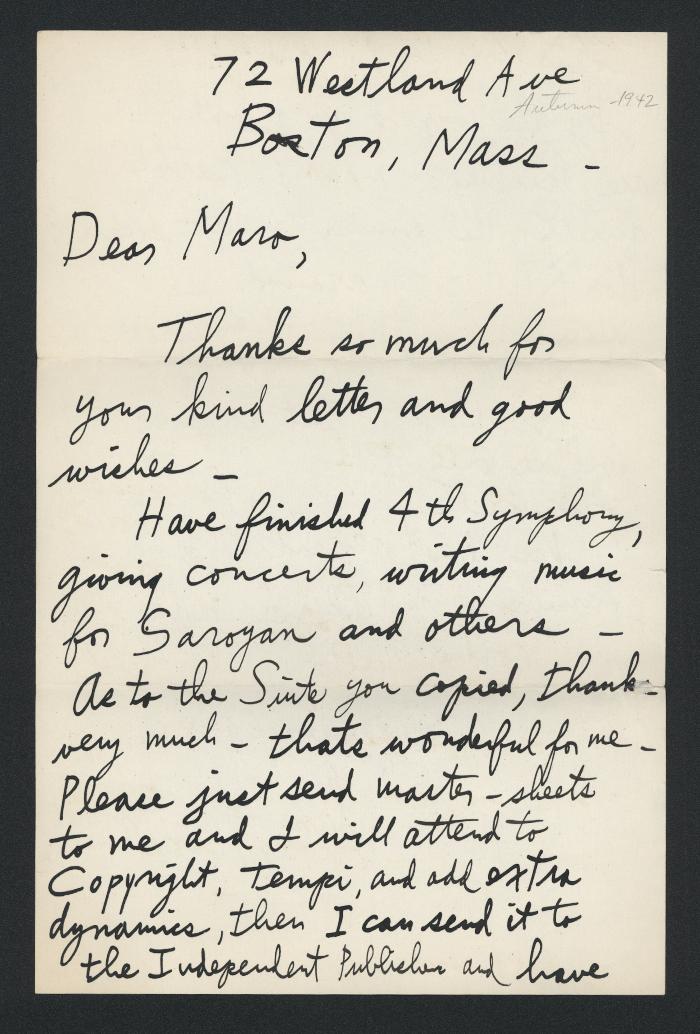 72 Westland Ave
Autumn - 1942
Boston, Mass -
Dear Maro,
Thanks so much for
your kind letter and good
wishes -
Have finished 4th Symphony,
giving concerts, writing music
for Saroyan and others -
As to the Suite you copied, thank-
very much - thats wonderful for me -
Please just send master - sheets
to me and I will attend to
Copyright, Tempi, and add extra
dynamics, then I can send it to
the Independent Publisher and have